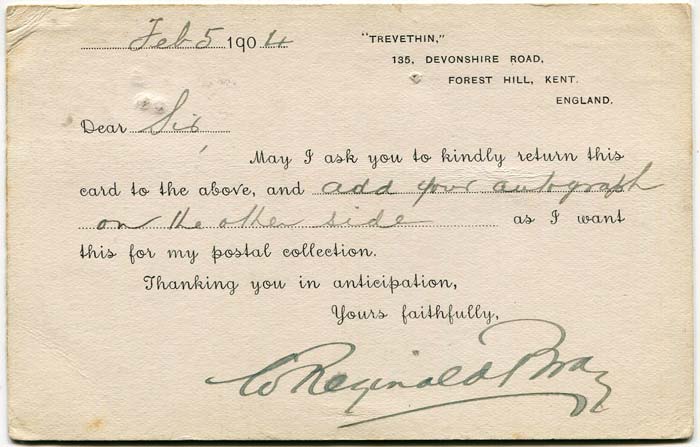 Feb 5 1904
"TREVETHIN,"
135, DEVONSHIRE ROAD,
FOREST HILL, KENT.
ENGLAND.
Dear Sir,
May I ask you to kindly return this
card to the above, and add your autograph
on the other side as I want
this for my postal collection.
Thanking you in anticipation,
Yours faithfully,
W Reginald Bray